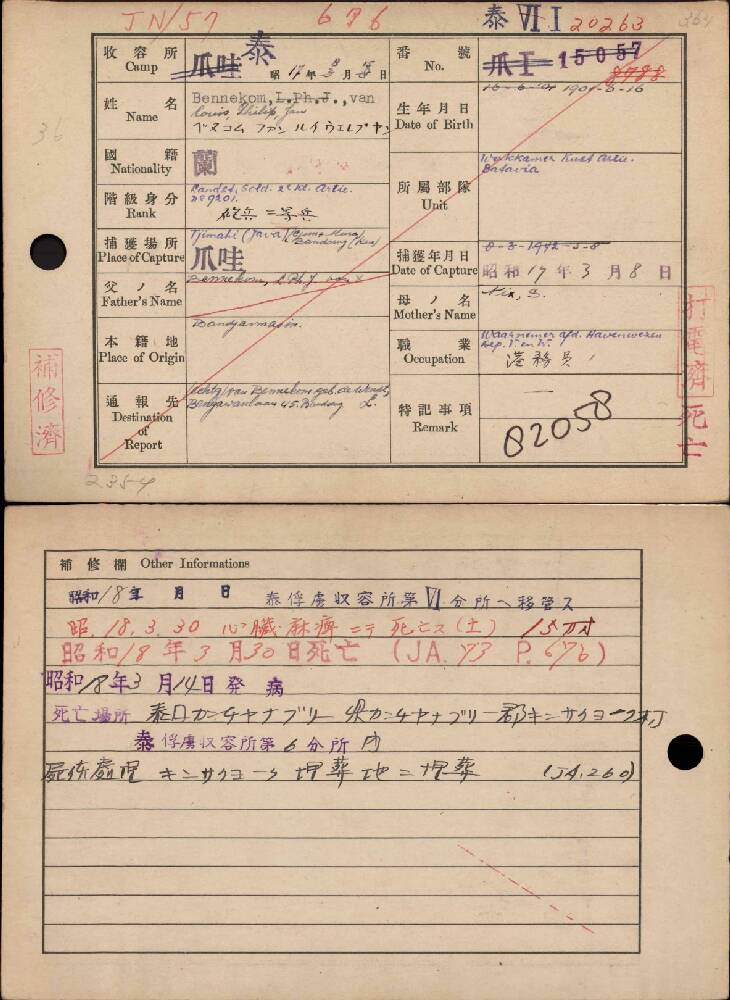 JN/57 676 泰 VI I 20263 364
收容所 Camp 爪哇 泰 昭17年8月 日
番號 No. 爪I 15057 8788
36
姓名 Name Bennekom, L.Ph.J., van
Louis, Philip, Jan
生年月日 Date of Birth 1901-8-16
國籍 Nationality 蘭
階級身分 Rank Landst. Sold. 2e kl. Artie.
砲兵二等兵
所屬部隊 Unit Kust Artie.
Batavia
捕獲場所 Place of Capture Tjimahi (Java)
Bandung
爪哇
捕獲年月日 Date of Capture 8-3-1942
昭和17年3月8日
父ノ名 Father's Name Bennekom, L Ph J van
母ノ名 Mother's Name
本籍地 Place of Origin Bandjarmasin.
職業 Occupation Waarnemer afd. Havenwezen
港務員
通報先 Destination of Report van Bennekom geb. de
Bengawanlaan 45. Bandung
特記事項 Remark
82058
補修濟
打電濟
死亡
2354
補修欄 Other Informations
昭和18年 月 日 泰俘虜収容所第VI分所ヘ移管ス
昭.18.3.30 心臓麻痺ニテ死亡ス(土)
昭和18年3月30日死亡 (JA.73 P.676)
昭和18年3月14日発病
死亡場所 泰国カンチヤナブリー県カンチヤナブリー郡キンサクヨーク村
泰俘虜収容所第6分所内
屍体處理 キンサクヨーク埋葬地ニ埋葬 (JA.260)